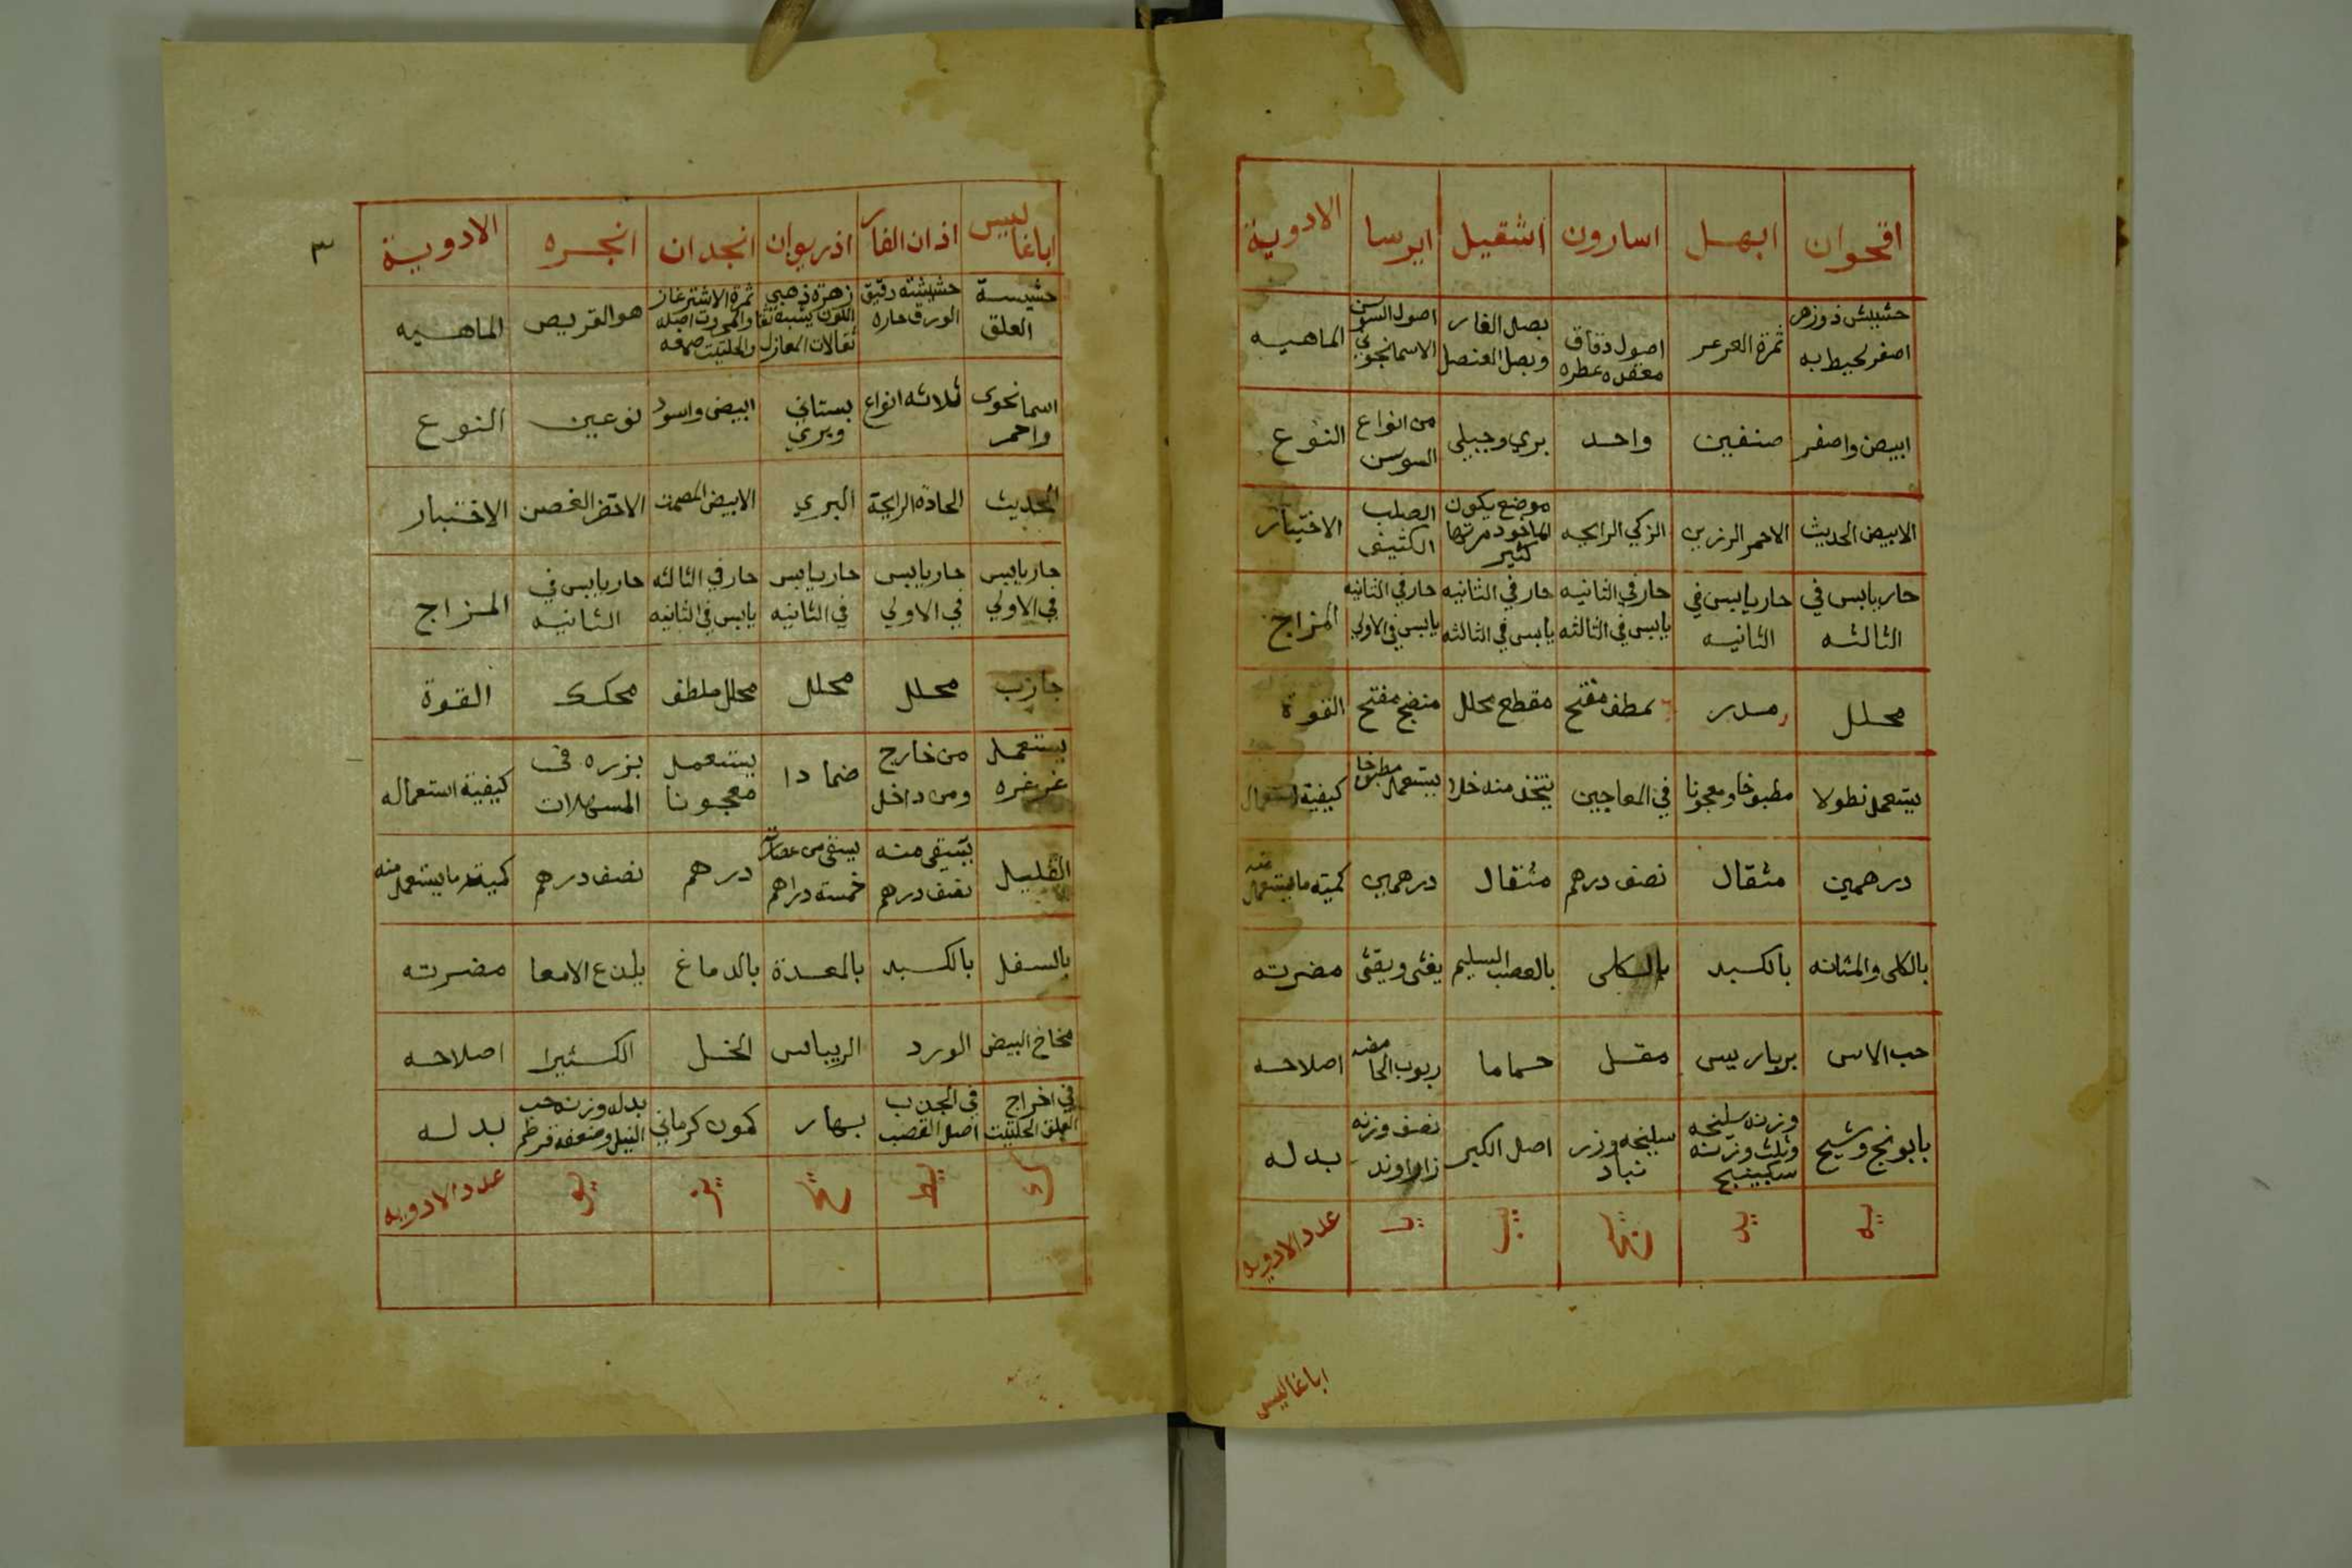 اقحوان ابهل اسارون اشقيل ايرسا الادوية
حشيش ذو زهر اصفر يحيط به ثمرة العرعر اصول دقاق معقده عطره بصل الفار وبصل العنصل اصول السوسن الاسمانجوني الماهيه
ابيض واصفر صنفين واحد بري وجبلي من انواع السوسن النوع
الابيض الحديث الاحمر الرزين الزكي الرايحه موضع يكون كثير الصلب الكثيف الاختيار
حار يابس في الثالثه حار يابس في الثانيه حار في الثانيه يابس في الثالثه حار في الثانيه يابس في الثالثه حار في الثانيه يابس في الاولي المزاج
محلل مدر مفتح مقطع محلل منضج مفتح القوة
يستعمل نطولا مطبوخا ومعجونا في المعاجين يتخذ منه خلا يستعمل مطبوخا كيفية استعمال
درهمين مثقال نصف درهم مثقال درهمين كميته ما يستعمل منه
بالكلى والمثانه بالكبد بالكلى بالعصب السليم يغثى ويقئى مضرته
حب الاس برباريس مقل حماما ربوب الحامضه اصلاحه
بابونج وشيح وزنه سليخه وثلث وزنه سكبينج سليخه وزرنباد اصل الكبر نصف وزنه زراوند بدله
يه يد يج يب يا عدد الادويه
اباغاليس
٣
اباغاليس اذان الفار اذريوان انجدان انجره الادوية
حشيسة العلق حشيشته رقيق الورق حاره زهرة ذهبي اللون ثمرة الاشترغاز والمحروت اصله والحلتيت صمغه هو القريص الماهيه
اسمانجوى واحمر ثلاثه انواع بستاني وبري ابيض واسود نوعين النوع
الحديث الحادة الرايحة البري الابيض المصمت الاخضر الغصن الاختيار
حار يابس في الاولي حار يابس في الاولي حار يابس في الثانيه حار في الثالثه يابس في الثانيه حار يابس في الثانيه المزاج
جازب محلل محلل محلل ملطف محكك القوة
يستعمل غرغره من خارج ومن داخل ضمادا يستعمل معجونا بزره في المسهلات كيفية استعماله
القليل يستقي منه نصف درهم يسقى من عصارته خمسة دراهم درهم نصف درهم كميته ما يستعمل منه
بالسفل بالكبد بالمعدة بالدماغ يلذع الامعا مضرته
مخاخ البيض الورد الريباس الخل الكثيرا اصلاحه
في اخراج العلق الحلتيت في الجذب اصل القصب بهار كمون كرماني بدله وزنه حب النيل وضعفه قرطم بدله
ك يط يح يز يو عدد الادويه